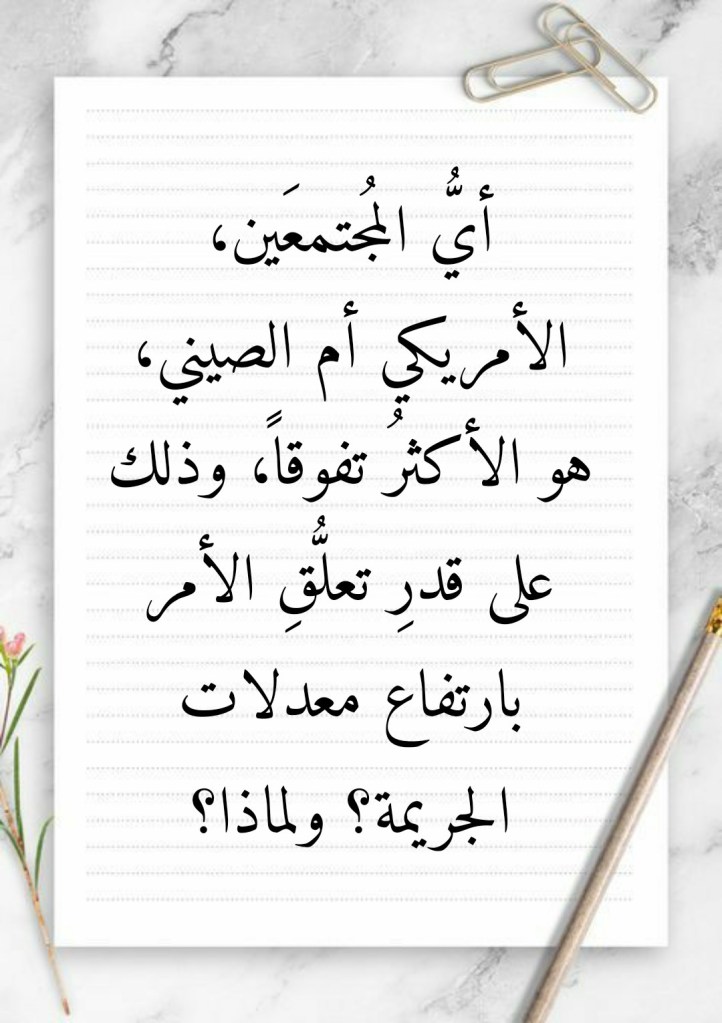 أيُّ المُجتمعَين،
الأمريكي أم الصيني،
هو الأكثرُ تفوقاً، وذلك
على قدرِ تعلُّقِ الأمر
بارتفاع معدلات
الجريمة؟ ولماذا؟